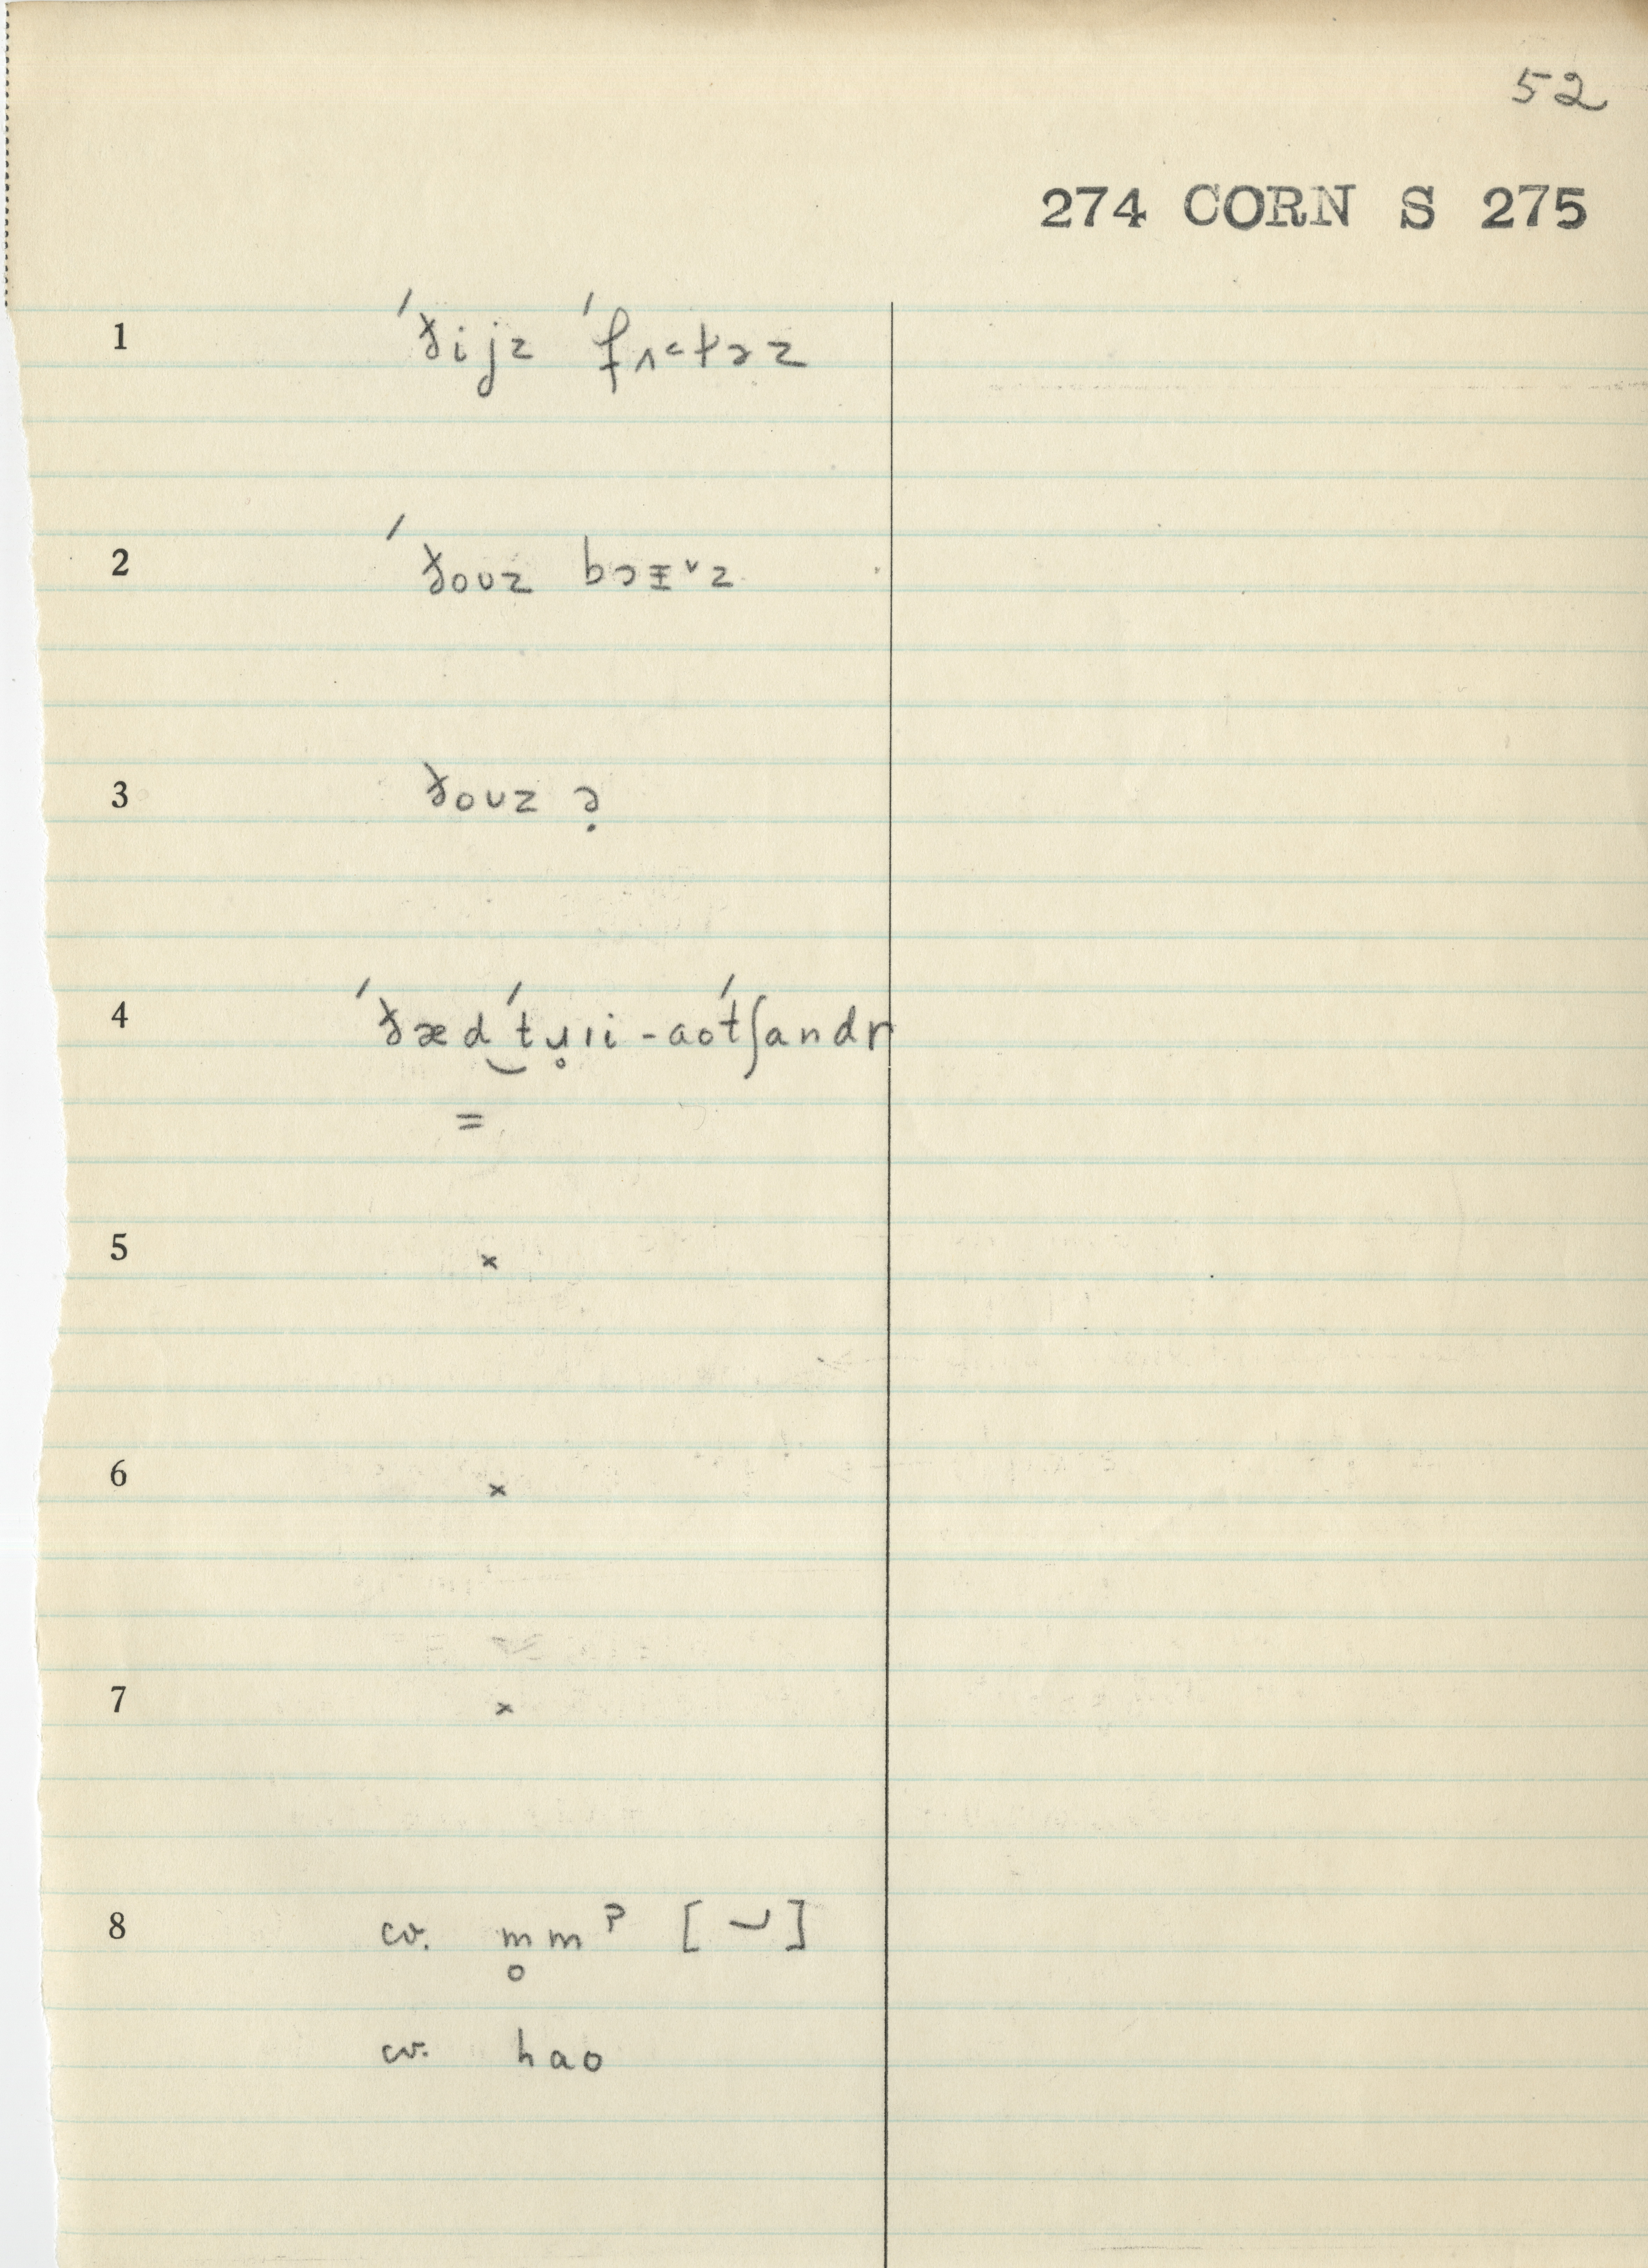 52
274 CORN S 275
1 ˊðijz ˊfʌ˂təz
2 ˊðouz bɔɪ̵ᵛz
3 ðouz ə̣
4 ˊðæd͜ ˊtɹ̥ıi - aoˊtʃandr
=
5 ×
6 ×
7 ×
8 cv. m̥mˀ [ ⏑ ]
cv. hao